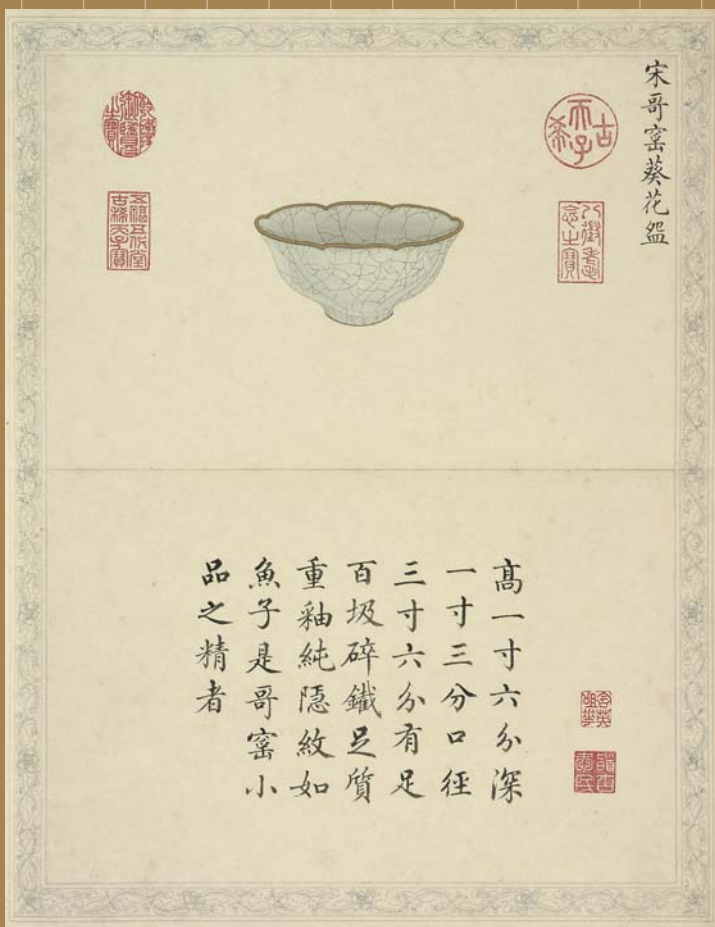 宋哥窰葵花盌
古希天子
八徵耄念之寶
乾隆御覽之寶
五福五代堂古稀天子寶
髙一寸六分深
一寸三分口徑
三寸六分有足
百圾碎鐵足質
重釉純隱紋如
魚子是哥窰小
品之精者
含英咀華